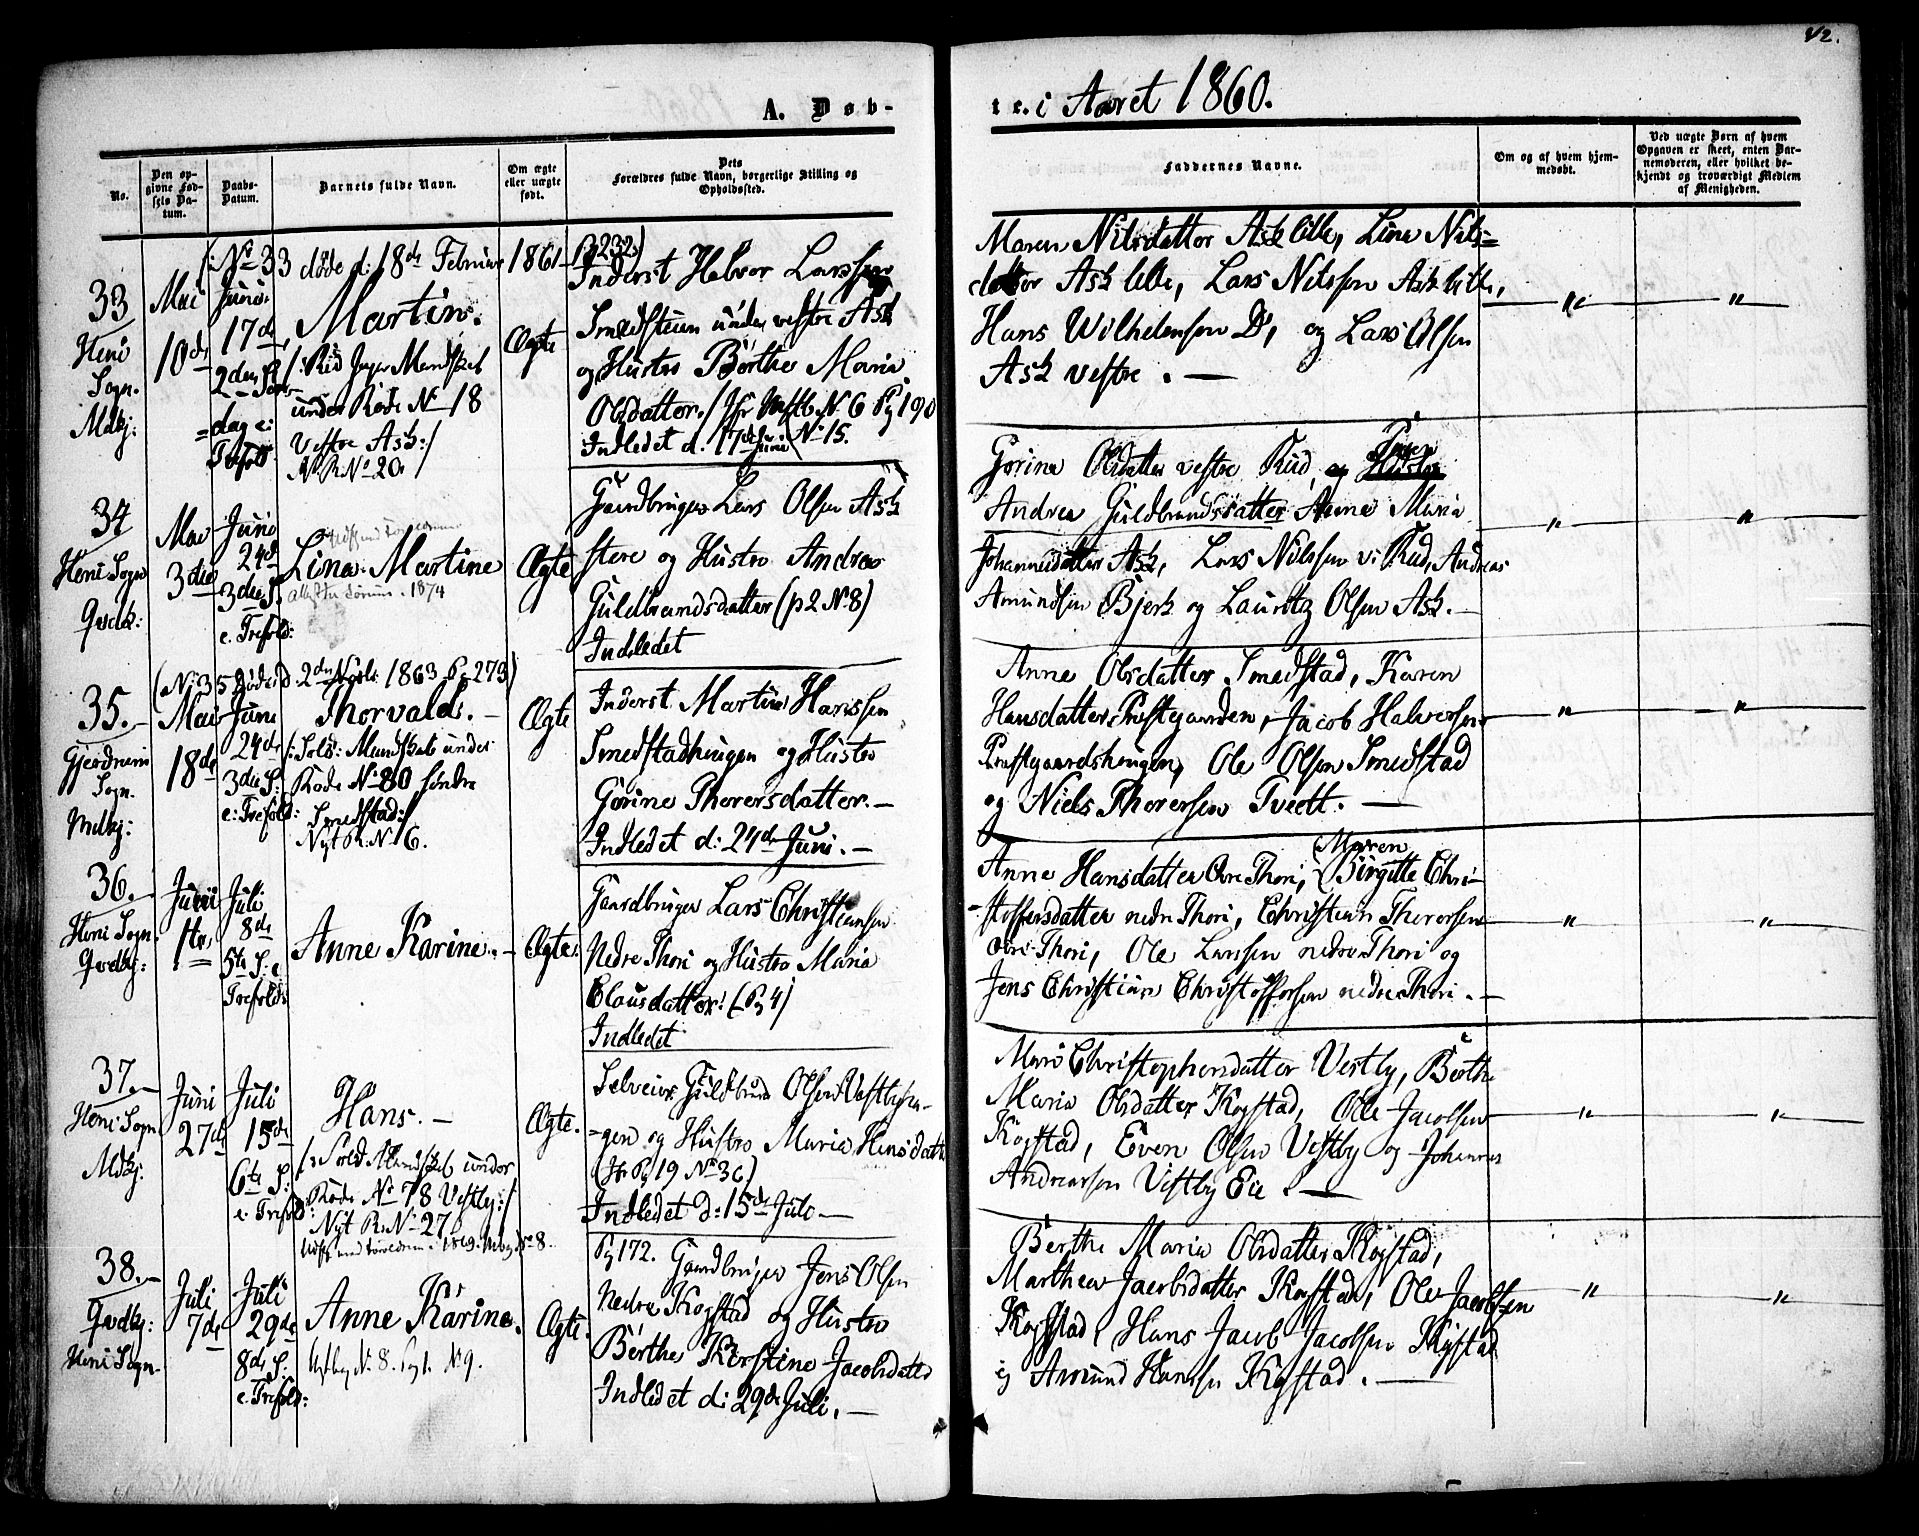 42.
A. Døb-
te. i Aaret 1860.
No.
Den op-
givne Fød-
sels Da-
tum.
Daabs-
Datum.
Barnets fulde Navn.
Om ægte
eller uægte
født.
Dets
Forældres fulde Navn, borgerlige Stilling og
Opholdssted.
Faddernes Navne.
Om og af hvem hjem-
medøbt.
Ved uægte Børn af hvem
Opgaven er skeet, enten Bar-
nemoderen, eller hvilket be-
kjendt og troværdigt Medlem
af Menigheden.
(: No 33 døde d: 18de Februar 1861 Pg 232:)
33
Heni
Sogn.
Mdkj:
Mai
10de
Juni
17de
2den S.
dag e:
Trefold:
Martin.
under Rode No 18
Vestre Ask:/
N. R. No 20./
Ægte
Inderst Halvor Larssen
Smedstuen under vestre Ask
og Hustro Børthe Maria
Olsdatter. No 6 Pg 190
Indledet d. 17de Juni No 15.
Maren Nilsdatter Ask lille, Line Nils-
datter Ask lille, Lars Nilssen Ask lille,
Hans Wilhelmsen Do, og Lars Olsen
Ask vestre. —
34
Heni Sogn
Qvdkj:
Mai
3die
Juni
24de
3die S.
e. Trefold:
Line Martine
1874
Ægte
Gaardbruger Lars Olsen Ask
store og Hustro Andrea
Guldbrandsdatter (p 2 No 8)
Indledet
Gorine Olsdatter vestre Rud, og
Andrea Guldbrandsdatter Anne Maria
Johannesdatter Ask, Lars Nilssen v: Rud, Andreas
Amundsen Bjerk og Lauritz Olsen Ask. —
(No 35 døde d. 2den 1863 Pg 273)
35. —
Gjerdrum
Sogn.
Mdkj:
Mai
18de
Juni
24de
3die S:
e: Trefold:
Thorvald. —
/: Sold: Mandskab under
Rode No 80 søndre
Smedstad:/
Nyt R. No 16.
Ægte
Inderst Martin Hanssen
Smedstadhaugen og Hustro
Gorine Thorersdatter. —
Indledet d: 24de Juni. —
Anne Olsdatter Smedstad, Karen
Hansdatter Præstgaarden, Jacob Halvorsen
Præstgaardshaugen, Ole Olsen Smedstad
og Niels Thorersen Tvedt. —
36. —
Heni Sogn.
Qvdkj:
Juni
1ste
Juli
8de
5te S: e
Trefold:
Anne Karine. —
Ægte.
Gaardbruger Lars Christiansen
Nedre Thori og Hustro Maria
Clausdatter! (Pg 4)
Indledet
Maren
Anne Hansdatter Øvre Thori, Birgitte Chri-
stoffersdatter nedre Thori, Christian Thorersen
Øvre Thori, Ole Larssen nedre Thori og
Jens Christian Christoffersen nedre Thori. —
37. —
Heni Sogn
Mdkj.
Juni
27de
Juli
15de
6te S:
e. Trefold:
Hans. —
/: Sold Mandskab under
Rode No 78 Vestby:/
Nyt R. No 27
1869. No 8.
Ægte.
Selveier Guldbrand Olsen Vestbyha-
gen og Hustro Maria Hansdatter
(Pg 19 No 36)
Indledet d: 15de Juli —
Mari Christophersdatter Vestby, Berthe
Maria Olsdatter Kogstad, Ole Jacobsen
Kogstad, Even Olsen Vestby og Johannes
Andreassen Vestby Eie. —
38. —
Qvdkj:
Heni Sogn.
Juli
7de
Juli
29de
8de S:
e. Trefold:
Anne Karine.
No 8. No 9.
Ægte.
Pg 172. Gaardbruger Jens Olsen
Nedre Kogstad og Hustro
Berthe Kirstine Jacobsdatter
Indledet d: 29de Juli. —
Berthe Maria Olsdatter Kogstad,
Marthea Jacobsdatter Kogstad, Ole Jacobsen
Kogstad, Hans Jacob Jacobsen Kogstad
og Amund Hanssen Kogstad. —